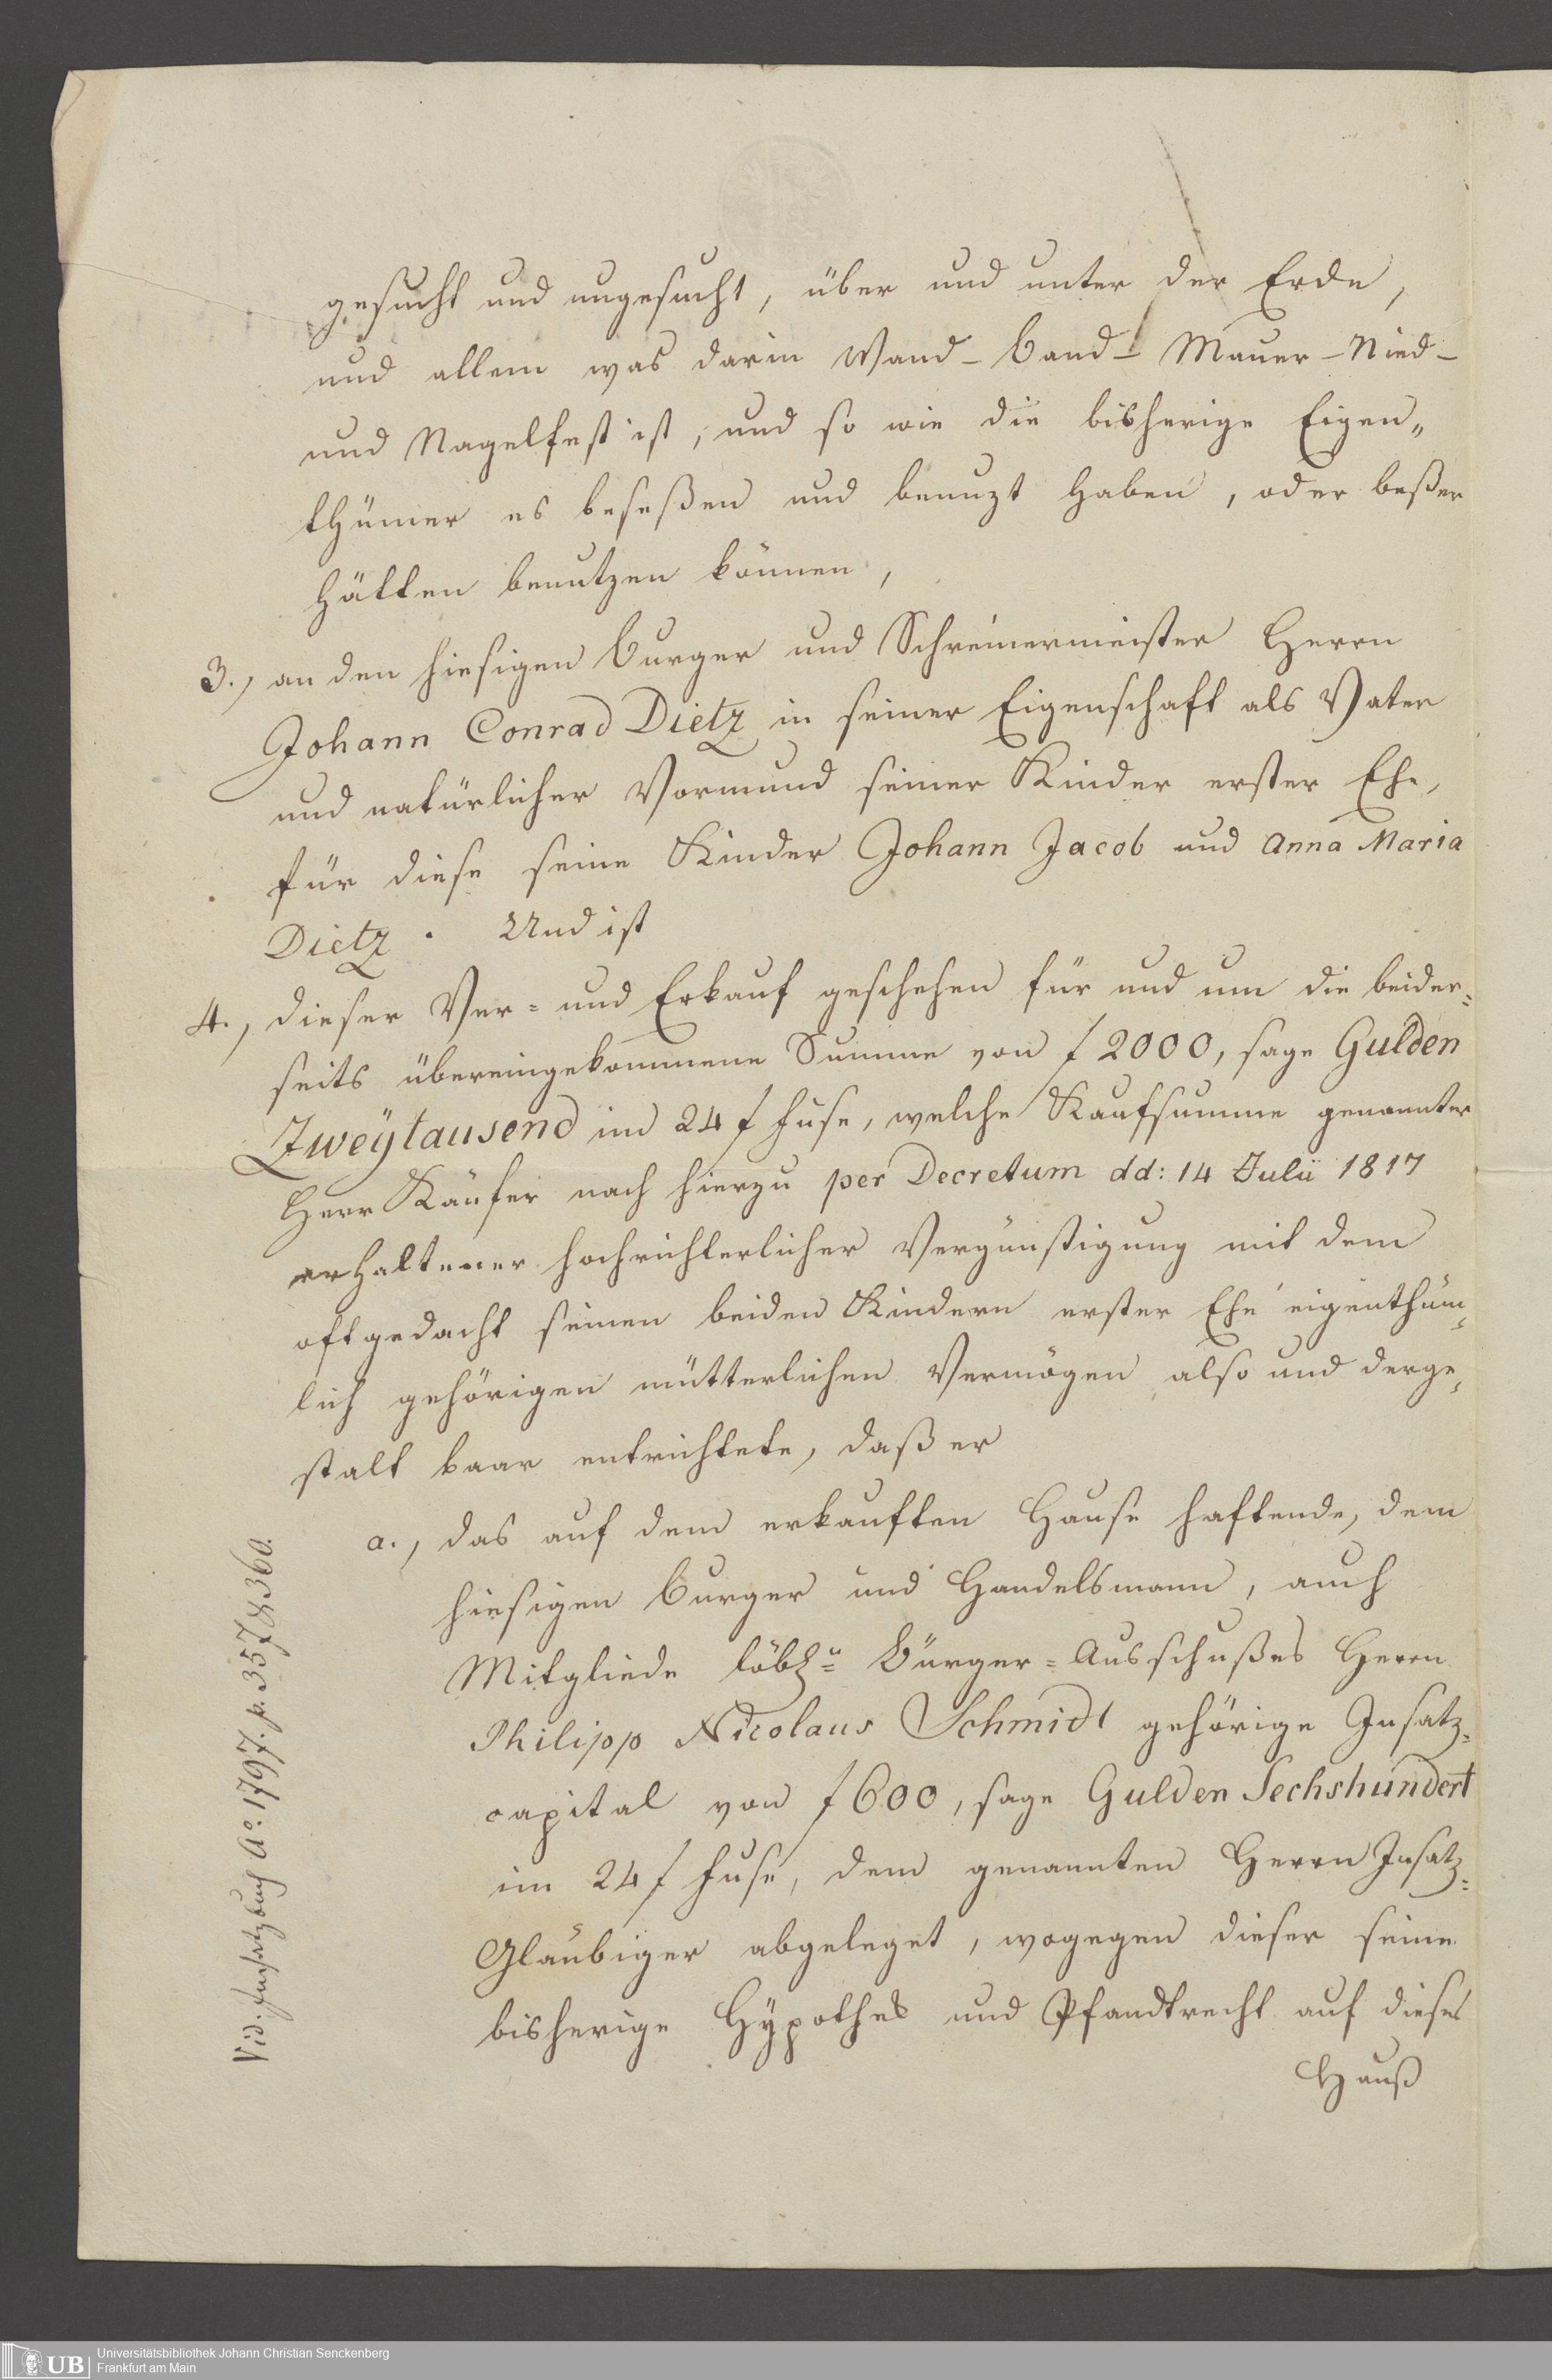 gesucht und ungesucht, über und unter der Erde,
und allem was darin Wand- Band- Mauer- Nied-
und Nagelfest ist, und so wie die bisherige Eigen„
thümer es beseßen und benuzt haben, oder beßer
hätten benutzen können,
3., an den hiesigen Burger und Schreinermeister Herrn
Johann Conrad Dietz in seiner Eigenschaft als Vater
und natürlicher Vormund seiner Kinder erster Ehe,
für diese seine Kinder Johann Jacob und Anna Maria
Dietz. Und ist
4., dieser Ver= und Erkauf geschehen für und um die beider=
seits übereingekommene Summe von f 2000, sage Gulden
Zweÿtausend im 24 f Fuse, welche Kaufsumme genannter
Herr Käufer nach hierzu per Decretum dd: 14 Julii 1817
erhaltener hochrichterlicher Vergünstigung mit dem
oftgedacht seinen beiden Kindern erster Ehe eigenthüm=
lich gehörigen mütterlichen Vermögen also und derge=
stalt baar entrichtete, daß er
a., das auf dem erkauften Hause haftende, dem
hiesigen Burger und Handelsmann, auch
Mitgliede löbl:n Bürger=Ausschußes Herrn
Philipp Nicolaus Schmidt gehörige Insatz=
capital von f 600, sage Gulden Sechshundert
im 24 f Fuse, dem genannten Herrn Insatz=
Gläubiger abgeleget, wogegen dieser seine
bisherige Hÿpothes und Pfandtrecht auf dieses
Hauß
Vid. Insatzbuch Ao. 1797. p. 357 & 360.
UB Universitätsbibliothek Johann Christian Senckenberg
Frankfurt am Main